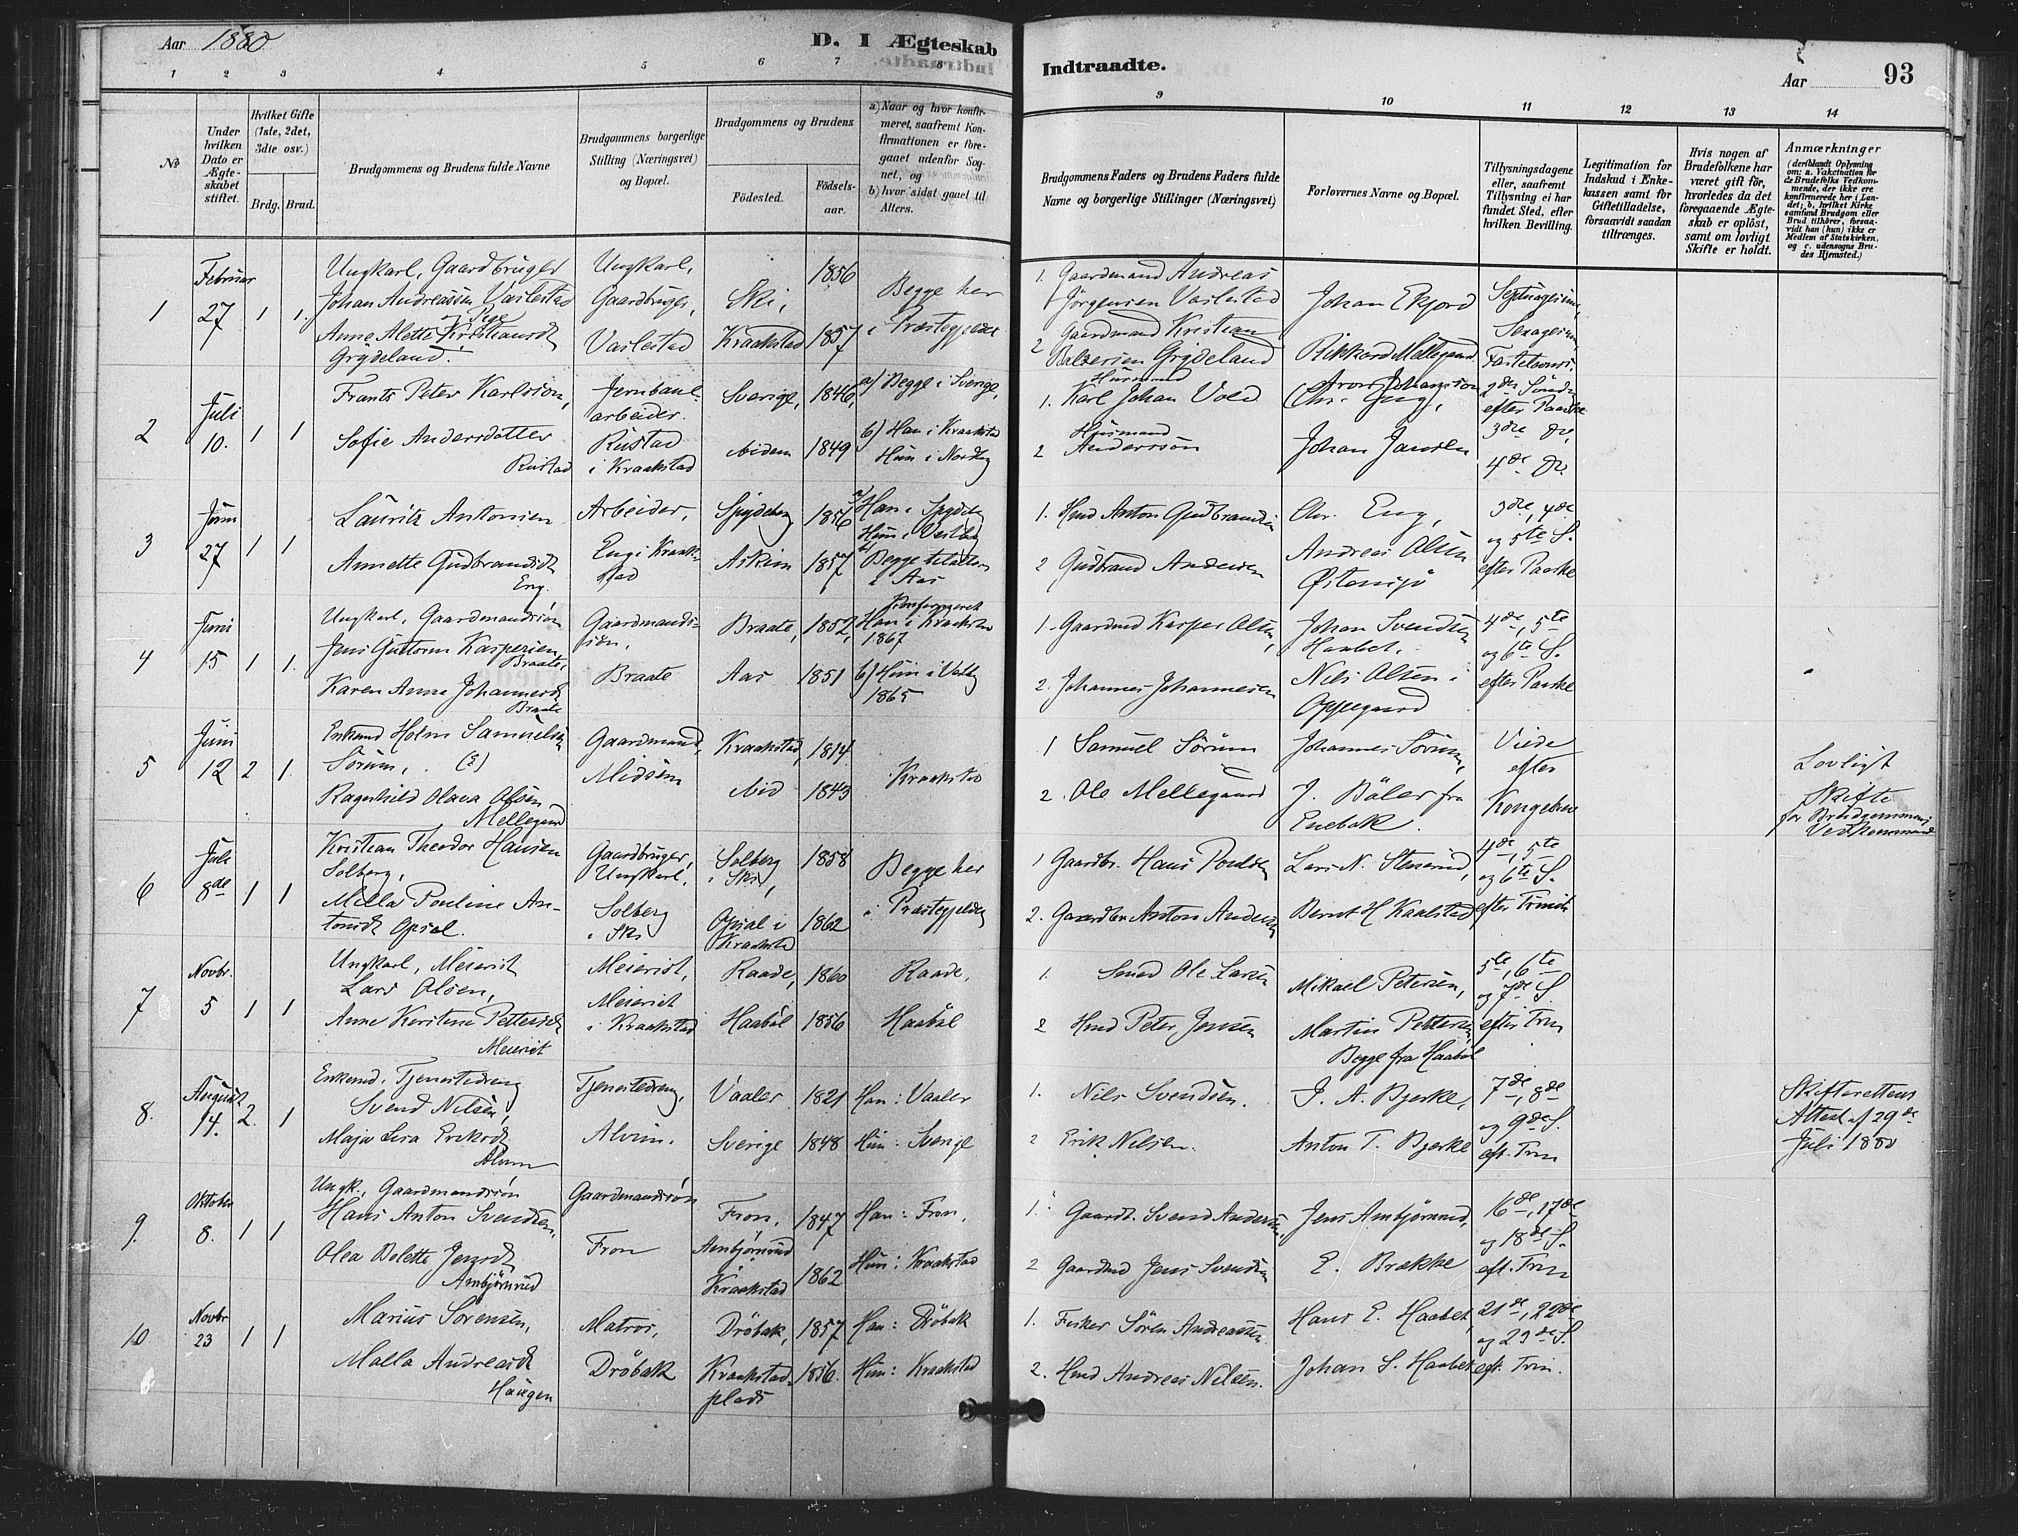 Aar 1880
D. I Ægteskab
Indtraadte.
Aar
93
1 2 3 4 5 6 7 8
9 10 11 12 13 14
No
Under hvilken Dato er Ægteskabet stiftet.
Hvilket Gifte (1ste, 2det, 3die osv.)
Brdg. Brud.
Brudgommens og Brudens fulde Navne
Brudgommens borgerlige Stilling (Næringsvei) og Bopæl.
Brudgommens og Brudens
Födested.
Födselsaar.
a) Naar og hvor konfirmeret, saafremt Konfirmationen er foregaaet udenfor Sognet, og
b) hvor sidst gaaet til Alters.
Brudgommens Faders og Brudens Faders fulde Navne og borgerlige Stillinger (Næringsvei)
Forlovernes Navne og Bopæl.
Tillysningsdagene eller, saafremt Tillysning ei har fundet Sted, efter hvilken Bevilling.
Legitimation for Indskud i Enkekassen samt for Giftetilladelse, forsaavidt saadan tiltrænges.
Hvis nogen af Brudefolkene har været gift för, hvorledes da det foregaaende Ægteskab er oplöst, samt om lovligt Skifte er holdt.
Anmærkninger
(deriblandt Oplysning om: a. Vakcination for de Brudefolks Vedkommende, der ikke ere konfirmerede her i Landet; b, hvilket Kirkesamfund Brudgom eller Brud tilhörer, forsaavidt han (hun) ikke er Medlem af Statskirken, og c. udensogns Brudes Hjemsted.)
1
Februar
27
1 1.
Ungkarl, Gaardbruger
Johan Andreassen Vaslestad
og Pige
Anne Alette Kristiansdt
Grydeland.
Ungkarl,
Gaardbruger,
Vaslestad
Ski,
Kraakstad
1856
1857
Begge her
i Præstegjeldet
1. Gaardmand Andreas
Jörgensen Vaslestad
2 Gaardmand Kristian
Grydeland
Johan Ekjord
Rikkard Mellegaard
Septuagesima,
Sexagesima,
Fastelavns.
2
Juli
10.
1 1
Frants Peter Karlsson,
Sofie Andersdatter
Rustad
Jernbanearbeider.
Rustad
i Kraakstad
Sverige,
ibidem
1846,
1849
a) Begge i Sverige,
b) Han i Kraakstad
Hun i Nordby
Husmand
1. Karl Johan Vold
Husmand
2 Anderssön
Aron Johansson
Chr. Eng,
Johan Jansen
2den Sönd.
efter Paaske
3die Do,
4de Do.
3
Juni
27
1 1
Lauritz Antonsen
Annette Gudbrandsdt
Eng.
Arbeider,
Eng i Kraakstad
Spydeberg
Askim
1856
1857
a) Han i Spydeberg
Hun i Vestby
b) Begge
i Aas
1. Hmd Anton Gudbrandsen
2 Gudbrand Andersen
Chr. Eng,
Andreas Olsen
Östensjö
3die, 4de
og 5te S.
efter Paaske
4
Juni
15
1 1.
Ungkarl, Gaardmandssön
Jens Guttorm Kaspersen
Braate,
Karen Anna Johannesdt
Braate
Gaardmandssön,
Braate
Braate,
Aas
1852,
1851
Konfirmeret
Han i Kraakstad
1867
b) Hun i Vestby
1865
1. Gaardmd Kasper Olsen,
2. Johannes Johannesen
Johan Svendsen
Haabet.
Nils Olsen i
Oppegaard
4de, 5te
og 6te S.
efter Paaske
5
Juni
12
2 1.
Enkemd Holm Samuelsen
Sörum, (E)
Ragnhild Olava Olsen
Mellegaard
Gaardmand,
Midsem
Kraakstad,
ibid
1814
1843
Kraakstad
1 Samuel Sörum
2. Ole Mellegaard
Johannes Sörum,
J. Böler fra
Enebak.
Viede
efter
Kongebrev
Lovligt
Skifte
for Brudgommens
Vedkommende
6
Juli
8de
1 1
Kristian Theodor Hansen
Solberg,
Milla Pouline Antonsdt Opsal.
Gaardbruger,
Ungkarl,
Solberg
i Ski
Solberg
i Ski,
Opsal i
Kraakstad
1858
1862
Begge her
i Præstegjeldet
1 Gaardbr. Hans Poulsen
2. Gaardbr Anton Andersen
Lars N. Stenerud,
Bernt H Kaalstad
4de, 5te
og 6te S.
efter Trinit.
7
Novbr.
5
1 1
Ungkarl, Meierist
Lars Olsen,
Anne Kerstine Pettersdt
Meierist
Meierist,
Meieriet
i Kraakstad
Raade,
Haaböl
1860
1856
Raade,
Haaböl
1. Smed Ole Larsen
2 Hmd Peter Jensen
Mikael Petersen,
Martin Pettersen
Begge fra Haaböl
5te, 6te
og 7de S.
efter Trin
8.
August
14.
2. 1
Enkemd. Tjenestedreng
Svend Nilsen,
Maja Lisa Eriksdt
Alvim
Tjenestedreng,
Alvim.
Vaaler
Sverige
1821
1848
Han: Vaaler
Hun: Sverige
1. Nils Svendsen.
2 Erik Nilsen.
J. A. Bjerke,
Anton T. Bjerke
7de, 8de
og 9de S.
eft. Trin
Skifterettens
Attest af 29de
Juli 1880
9.
Oktober
8.
1 1
Ungk., Gaardmandssön
Hans Anton Svendsen,
Olea Bolette Jensdt
Ambjörnrud
Gaardmandssön
Fron
Fron,
Ambjörnrud
i
Kraakstad
1847
1862
Han: Fron,
Hun: Kraakstad
1. Gaardb. Svend Andersen,
2 Gaardmd Jens Svendsen
Jens Ambjörnrud,
E. Brække
16de, 17de
og 18de S.
eft. Trin
10
Novbr
23
1 1
Marius Sörensen,
Malla Andreasdt
Haugen
Matros,
Dröbak
Dröbak,
Kraakstadplads
1857
1856.
Han: Dröbak
Hun: Kraakstad
1. Fisker Sören Andreassen
2. Hmd Andreas Nilsen.
Hans E. Haabet,
Johan S. Haabet
21de, 22de
og 23de S.
eft. Trin.